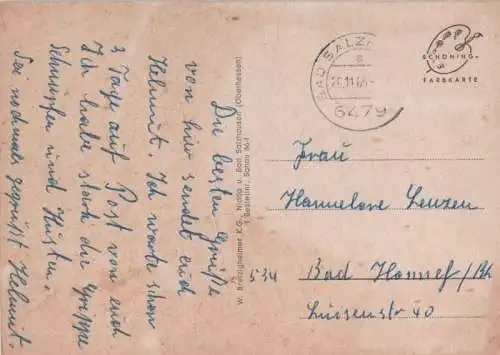 Die besten Grüße
von hier sendet euch
Helmut. Ich warte schon
3 Tage auf Post von euch
Ich habe stark die Grippe
Schnupfen und Husten.
Sei nochmals gegrüßt Helmut.
W. Breidingheimer K.G., Nidda u. Bad Salzhausen (Oberhessen)
1 Bestellnr. Sanau 66-1
BAD SALZ
a
11.65
6479
SCHÖNING
FARBKARTE
Frau
Hannelore Lenzen
534 Bad Honnef/Rh
Luisenstr 40